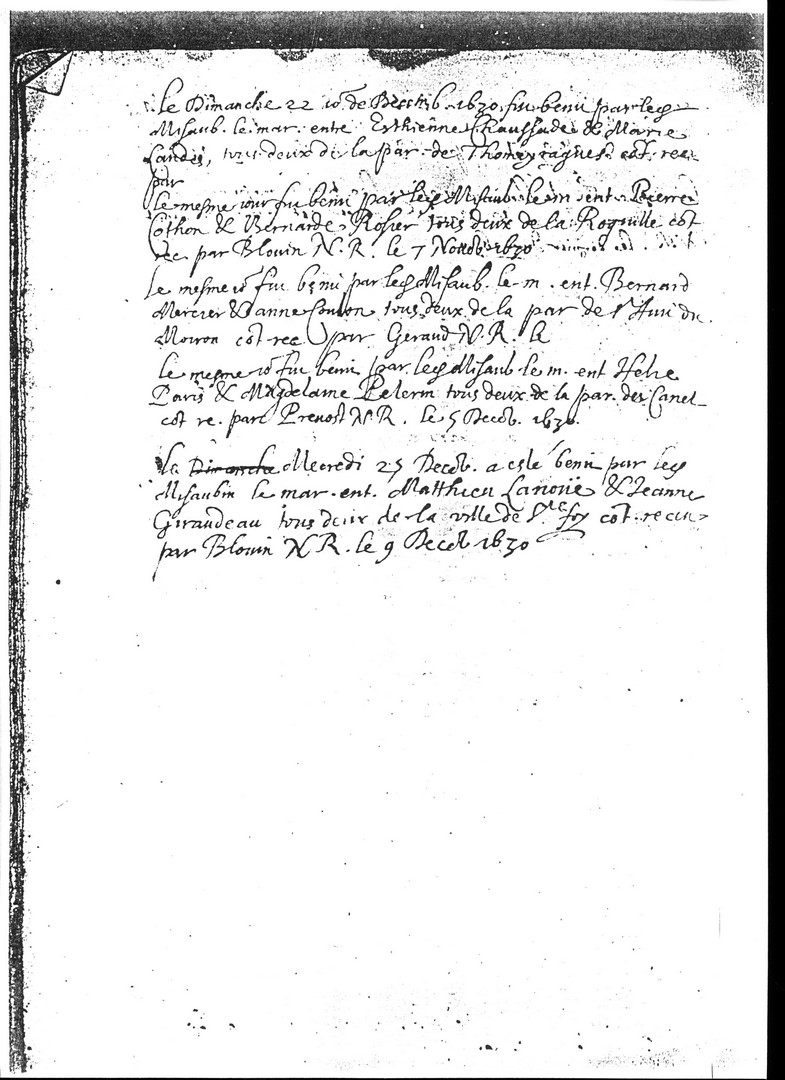 le Dimanche 22 io.r de Decēb. 1630. fut beni par led
Misaub. le mar. entre Esthienne Chaussade & Marie
Landes, tous deux de la par. de Thomeyragues. cōt. rec.
par
le mesme iour fut beni par led Misaub. le m. ent. Pierre
Cothon & Bernarde Rosier tous deux de la Roquille cōt
rec. par Blouin N. R. le 7 Novēb. 1630
le mesme io.r fut beni par led Misaub. le m. ent. Bernard
Mercier & anne Coulon tous deux de la par de St
Moiron cōt rec par Geraud N. R. le
le mesme io.r fut beni par led Misaub le m. ent Helie
Paris & Magdelaine Pelerin tous deux de la par. des
cōt re. par Prevost N. R. le 5 Decēb. 1630.
le Dimanche Mecredi 25 Decēb. a esté beni par led
Misaubin le mar. ent. Matthieu Lanoüe & Jeanne
Giraudeau tous deux de la ville de Ste foy cōt. receu
par Blouin N R. le 9 Decēb 1630